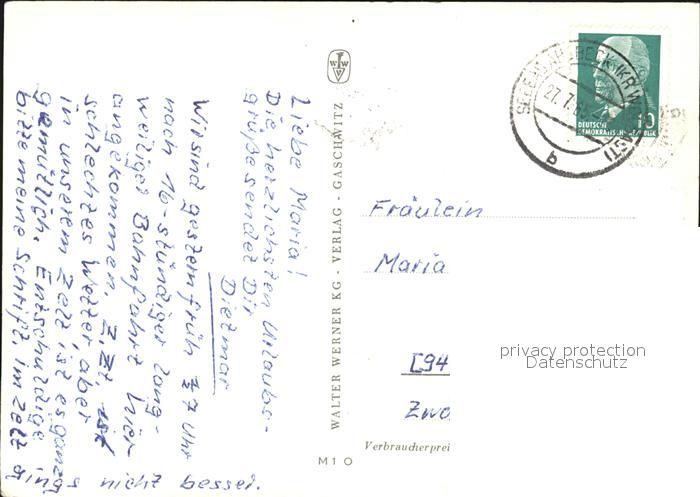 Liebe Maria!
Die herzlichsten Urlaubs-
grüße sendet Dir
Dietmar
Wir sind gestern früh 7 Uhr
nach 16-stündiger lang-
weiliger Bahnfahrt hier
angekommen. Z. Zt. ist
schlechtes Wetter aber
in unserem Zelt ist es ganz
gemütlich. Entschuldige
bitte meine Schrift, im Zelt
ging
s nicht besser.
WALTER WERNER KG - VERLAG - GASCHWITZ
WW
V
M 1 O
DEUTSCHE
DEMOKRATISCHE REPUBLIK
10
27.7.
b
Fräulein
Maria
[94
Zwo
Verbraucherprei
privacy protection
Datenschutz